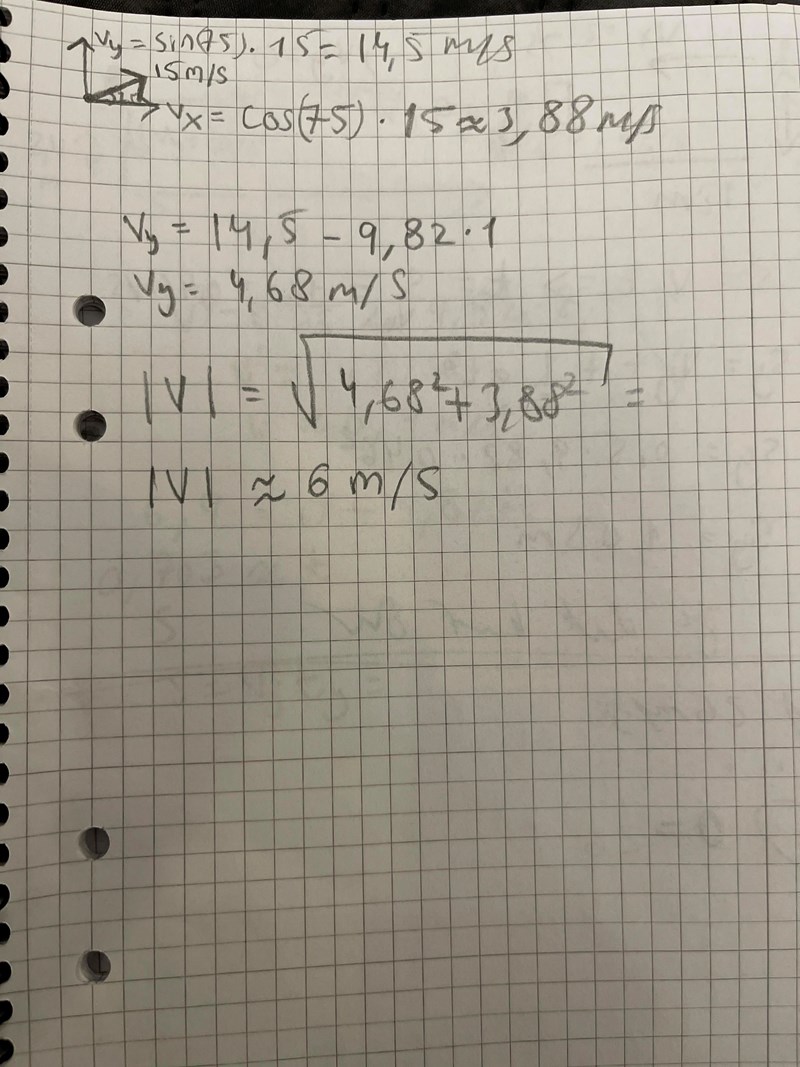 Vy = sin(75) · 15 = 14,5 m/s
15 m/s
Vx = cos(75) · 15 ≈ 3,88 m/s
Vy = 14,5 - 9,82 · 1
Vy = 4,68 m/s
|V| = √4,68² + 3,88² =
|V| ≈ 6 m/s